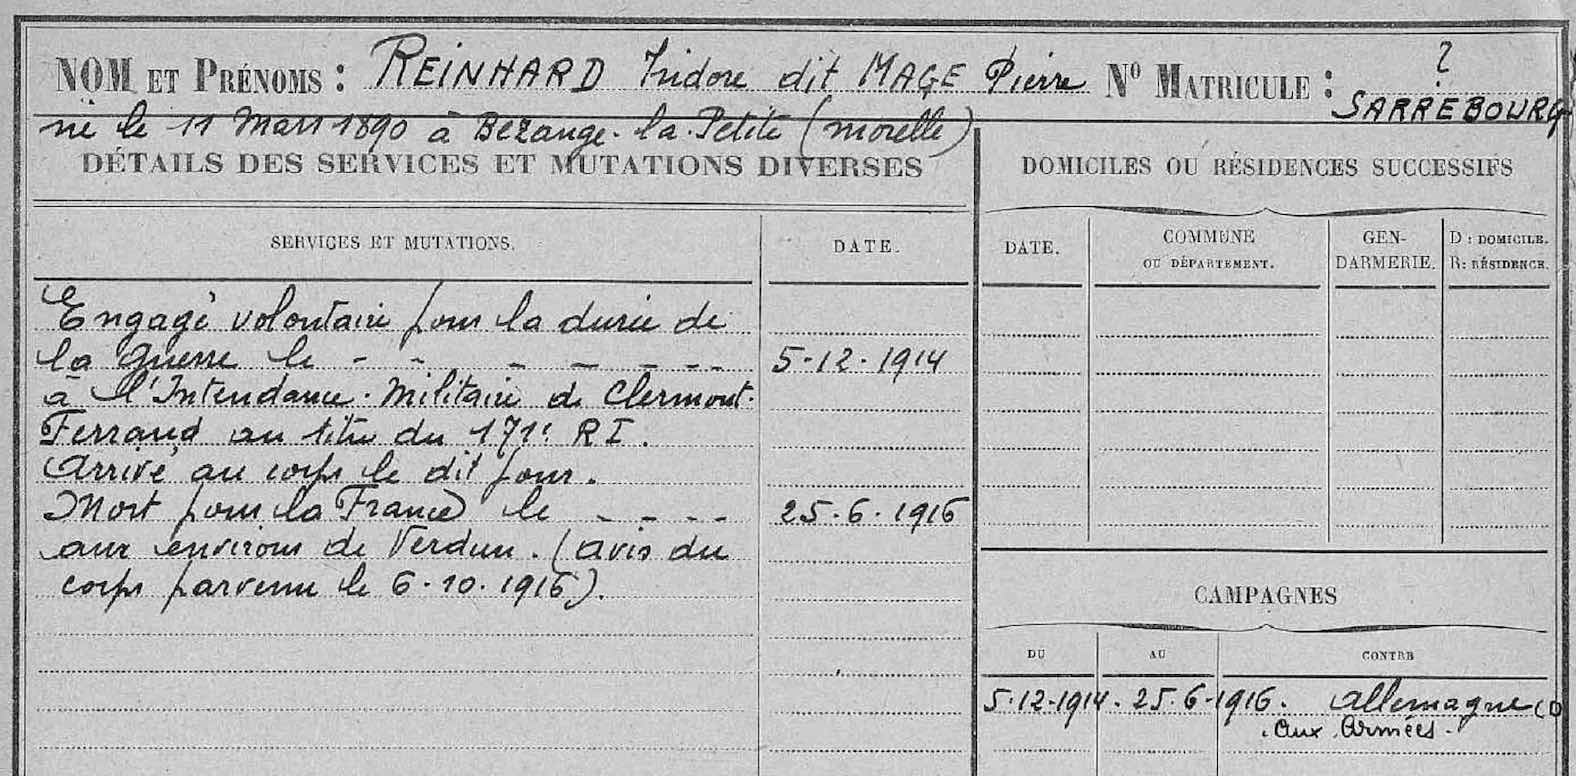 NOM ET PRÉNOMS : REINHARD Isidore dit MAGE Pierre N° MATRICULE : ?
SARREBOURG
né le 11 Mars 1890 à Bezange-la-Petite (Moselle)
DÉTAILS DES SERVICES ET MUTATIONS DIVERSES
SERVICES ET MUTATIONS.
DATE.
Engagé volontaire pour la durée de
la Guerre le - - - - - - - 5-12-1914
à l'Intendance Militaire de Clermont-
Ferrand au titre du 171e RI.
Arrivé au corps le dit jour.
Mort pour la France le - - - - 25-6-1916
aux environs de Verdun. (avis du
corps parvenu le 6-10-1916).
DOMICILES OU RÉSIDENCES SUCCESSIFS
DATE.
COMMUNE
OU DÉPARTEMENT.
GEN-
DARMERIE.
D : DOMICILE.
R : RÉSIDENCE.
CAMPAGNES
DU
AU
CONTRE
5-12-1914. 25-6-1916. Allemagne
Aux Armées.